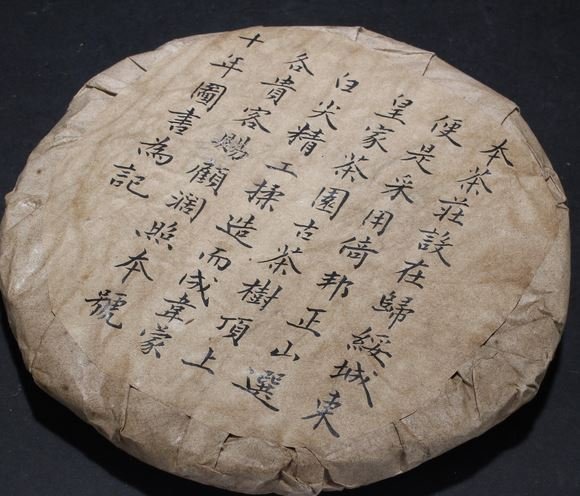 本茶莊設在歸綏城東
便是采用倚邦正山選
皇家茶園古茶樹頂上
白尖精工揉造而成韋蒙
各貴客賜顧濶照本號
十年圖書為記